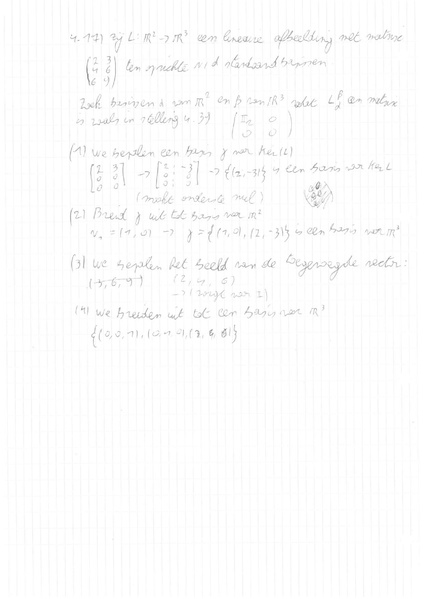 4.17) Zij L: ℝ² → ℝ³ een lineaire afbeelding met matrix
(2 3
4 6
6 9) ten opzichte v/d standaardbasissen
Zoek basissen α van ℝ² en β van ℝ³ zodat L_α^β een matrix
is zoals in stelling 4.39 (I_r 0
0 0)
(1) we bepalen een basis γ van ker(L)
[2 3
0 0
0 0] → [2 : -3
0 : 0
0 : 0] → {(2, -3)} is een basis van ker L
(maakt onderste nul)
(2) Breid γ uit tot basis van ℝ²
v₁ = (1, 0) → γ = {(1, 0), (2, -3)} is een basis van ℝ²
(3) we bepalen het beeld van de toegevoegde vector:
(3, 6, 9) (2, 4, 6)
(4) we breiden uit tot een basis van ℝ³
{(0, 0, 1), (0, 1, 0), (2, 4, 6)}